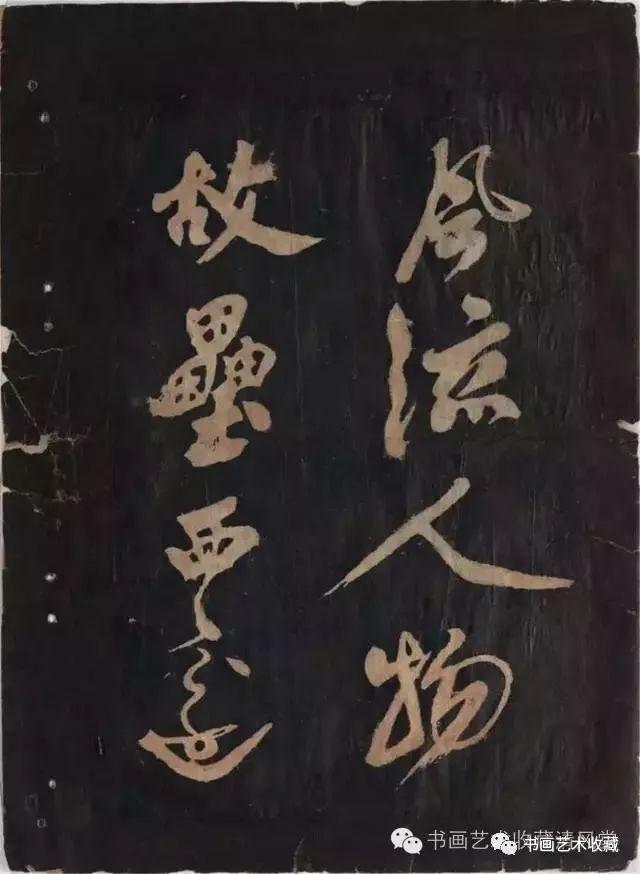 風流人物
故壘西邊
书画艺术收藏清风堂
书画艺术收藏